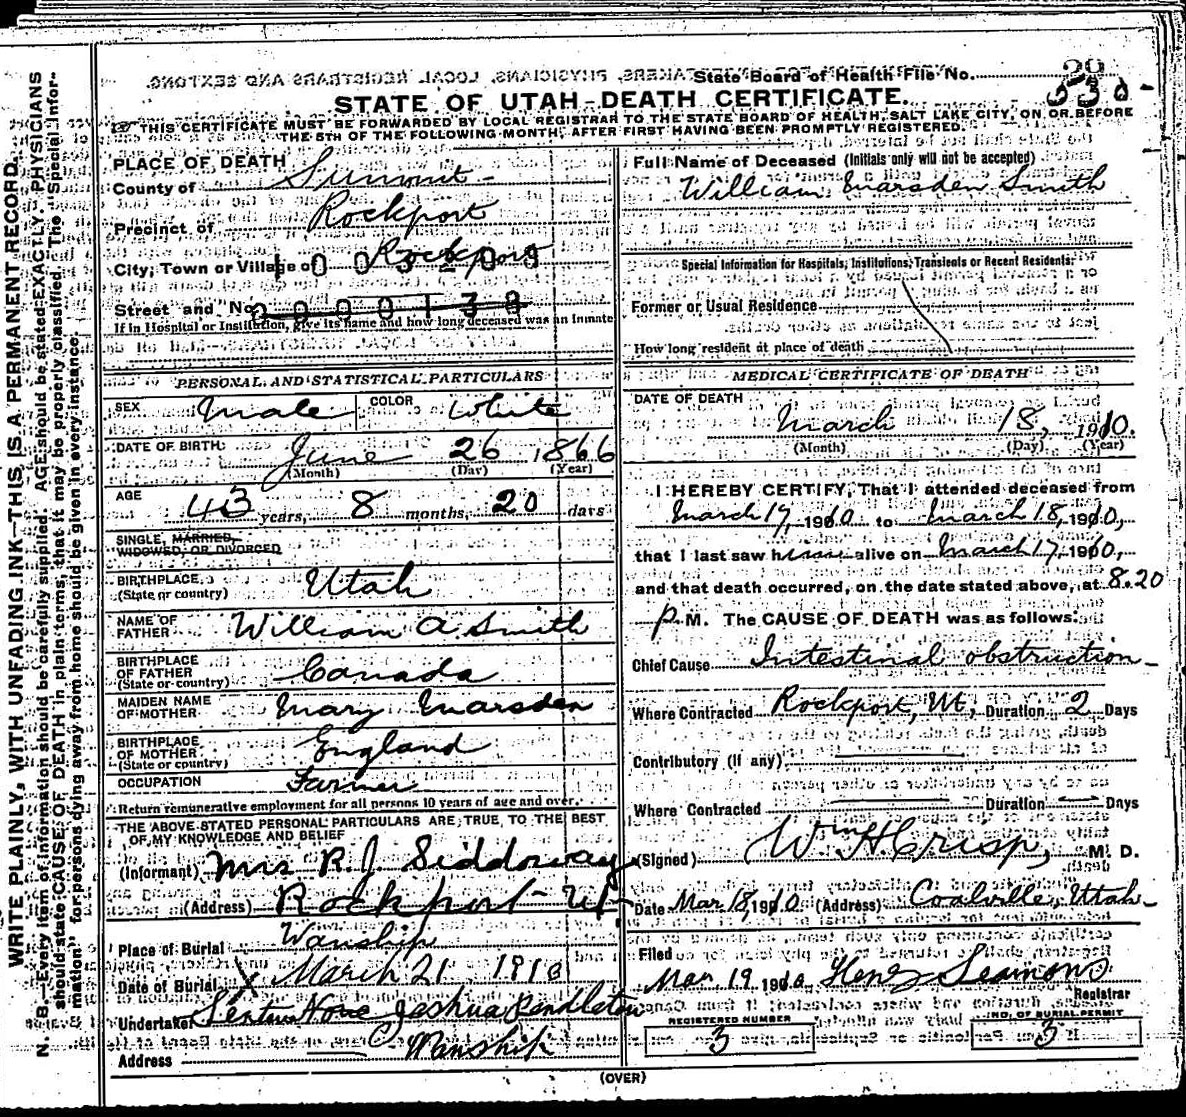 State Board of Health File No.
STATE OF UTAH-DEATH CERTIFICATE.
THIS CERTIFICATE MUST BE FORWARDED BY LOCAL REGISTRAR TO THE STATE BOARD OF HEALTH, SALT LAKE CITY, ON OR BEFORE
THE 5TH OF THE FOLLOWING MONTH, AFTER FIRST HAVING BEEN PROMPTLY REGISTERED.
WRITE PLAINLY, WITH UNFADING INK—THIS IS A PERMANENT RECORD.
N. B.—Every item of information should be carefully supplied. AGE should be stated EXACTLY. PHYSICIANS
should state CAUSE OF DEATH in plain terms, that it may be properly classified. The "Special Infor-
mation" for persons dying away from home should be given in every instance.
PLACE OF DEATH
County of Summit
Precinct of Rockport
City, Town or Village of Rockport
Street and No.
If in Hospital or Institution, give its name and how long deceased was an Inmate
PERSONAL AND STATISTICAL PARTICULARS
SEX Male COLOR White
DATE OF BIRTH June 26 1866
(Month) (Day) (Year)
AGE 43 years, 8 months, 20 days
SINGLE, MARRIED,
WIDOWED, OR DIVORCED
BIRTHPLACE
(State or country) Utah
NAME OF
FATHER William A Smith
BIRTHPLACE
OF FATHER
(State or country) Canada
MAIDEN NAME
OF MOTHER Mary Marsden
BIRTHPLACE
OF MOTHER
(State or country) England
OCCUPATION Farmer
Return remunerative employment for all persons 10 years of age and over.
THE ABOVE STATED PERSONAL PARTICULARS ARE TRUE, TO THE BEST
OF MY KNOWLEDGE AND BELIEF
(Informant) Mrs R. J. Siddoway
(Address) Rockport Ut
Place of Burial Wanship
Date of Burial X March 21 1910
Undertaker Joshua Pendleton
Address Wanship
Full Name of Deceased (Initials only will not be accepted)
William Marsden Smith
Special Information for Hospitals, Institutions, Transients or Recent Residents:
Former or Usual Residence
How long resident at place of death
MEDICAL CERTIFICATE OF DEATH
DATE OF DEATH
March 18, 1910.
(Month) (Day) (Year)
I HEREBY CERTIFY, That I attended deceased from
March 17, 1910 to March 18, 1910,
that I last saw him alive on March 17, 1910,
and that death occurred, on the date stated above, at 8.20
P. M. The CAUSE OF DEATH was as follows:
Chief Cause Intestinal obstruction
Where Contracted Rockport, Ut, Duration 2 Days
Contributory (if any)
Where Contracted Duration Days
(Signed) Wm H Crisp, M. D.
Date Mar 18, 1910 (Address) Coalville, Utah
Filed
Mar 19 1910 Henry Seamons
Registrar
REGISTERED NUMBER
3
NO. OF BURIAL PERMIT
3
(OVER)